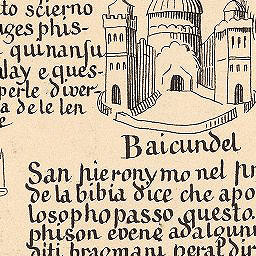 to scierno
ages phis-
i qui nansu
alay e ques-
perle diver-
a de le len
e
Baicundel
San hieronymo nel pr
de la bibia dice che apo
losopho passo questo.
phison evene ad algun
diti bragmani peral dir